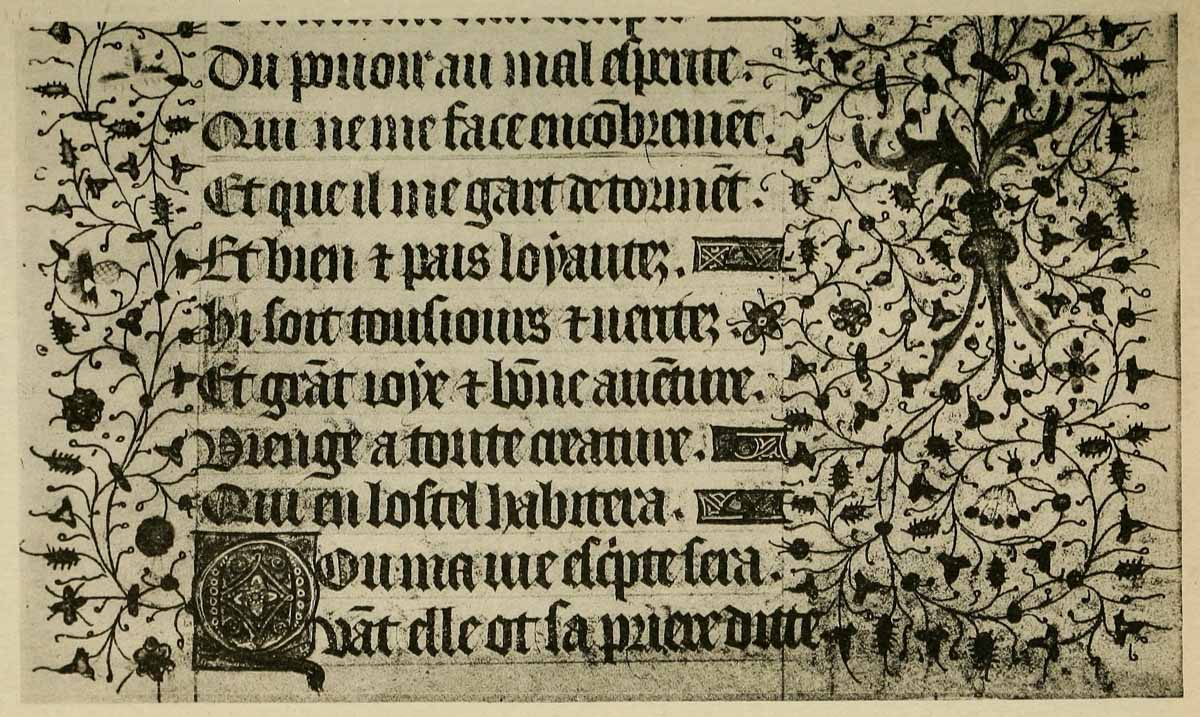 Du pouoir au mal esperite.
Qui ne me face encōbremēt.
Et que il me gart de tormēt.
Et bien ⁊ pais loyautez.
Hi soit tousiours ⁊ ueritez.
Et grāt ioye ⁊ bōne auēture.
Vienge a toute creature.
Qui en lostel habitera.
Ou ma uie esc̄pte sera.
Quāt elle ot sa priere ditte